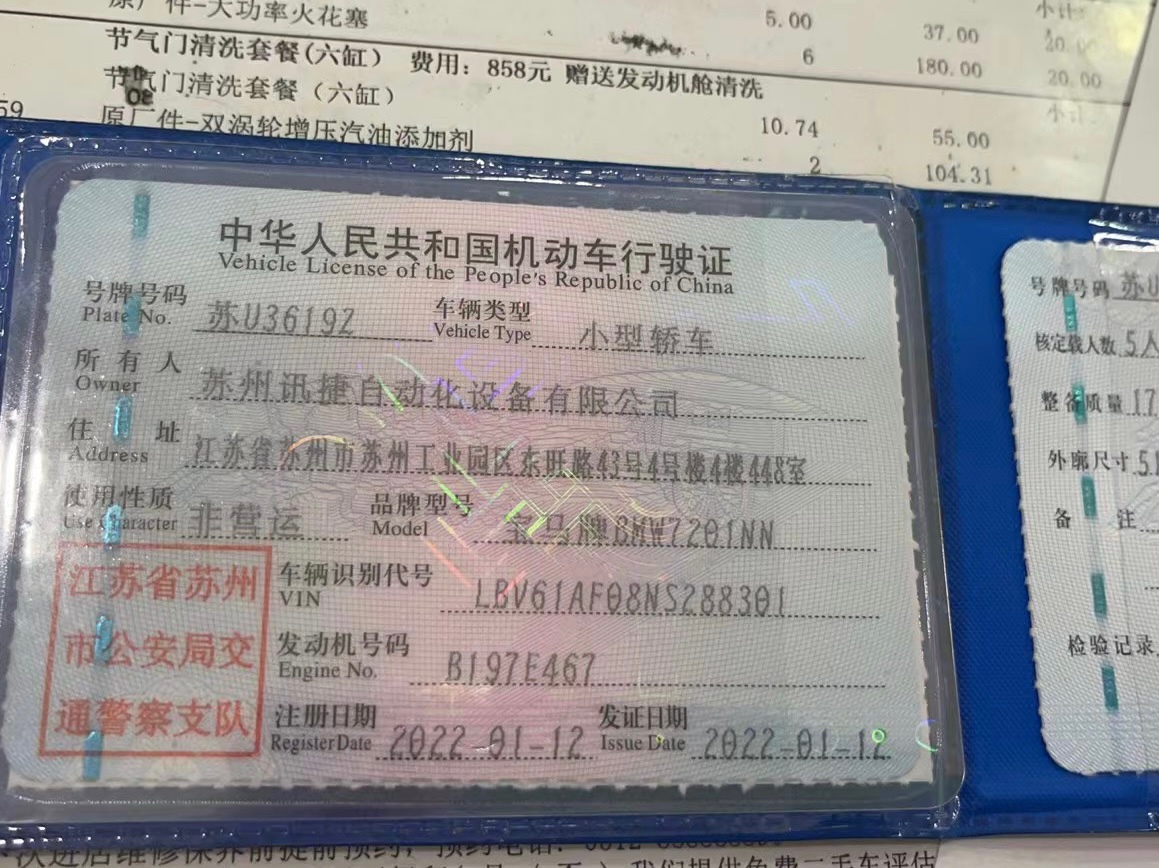 原厂件-大功率火花塞 5.00 37.00 小计
节气门清洗套餐(六缸) 费用: 858元 赠送发动机舱清洗 6 180.00 20.00
节气门清洗套餐 (六缸) 20.00
59 原厂件-双涡轮增压汽油添加剂 10.74 55.00 小计
2 104.31
中华人民共和国机动车行驶证
Vehicle License of the People's Republic of China
号牌号码 苏U3619Z 车辆类型 小型轿车
Plate No. Vehicle Type
所有人 苏州讯捷自动化设备有限公司
Owner
住址 江苏省苏州市苏州工业园区东旺路43号4号楼4楼448室
Address
使用性质 非营运 品牌型号 宝马牌BMW7201NN
Use Character Model
江苏省苏州
市公安局交
通警察支队
车辆识别代号 LBV61AF08NS288301
VIN
发动机号码 B197E467
Engine No.
注册日期 2022-01-12 发证日期 2022-01-12
Register Date Issue Date
号牌号码 苏U
核定载人数 5人
整备质量 17
外廓尺寸 51
备注
检验记录
次进店维修保养前提前预约, 预约电话: 0512
我们提供免费二手车评估